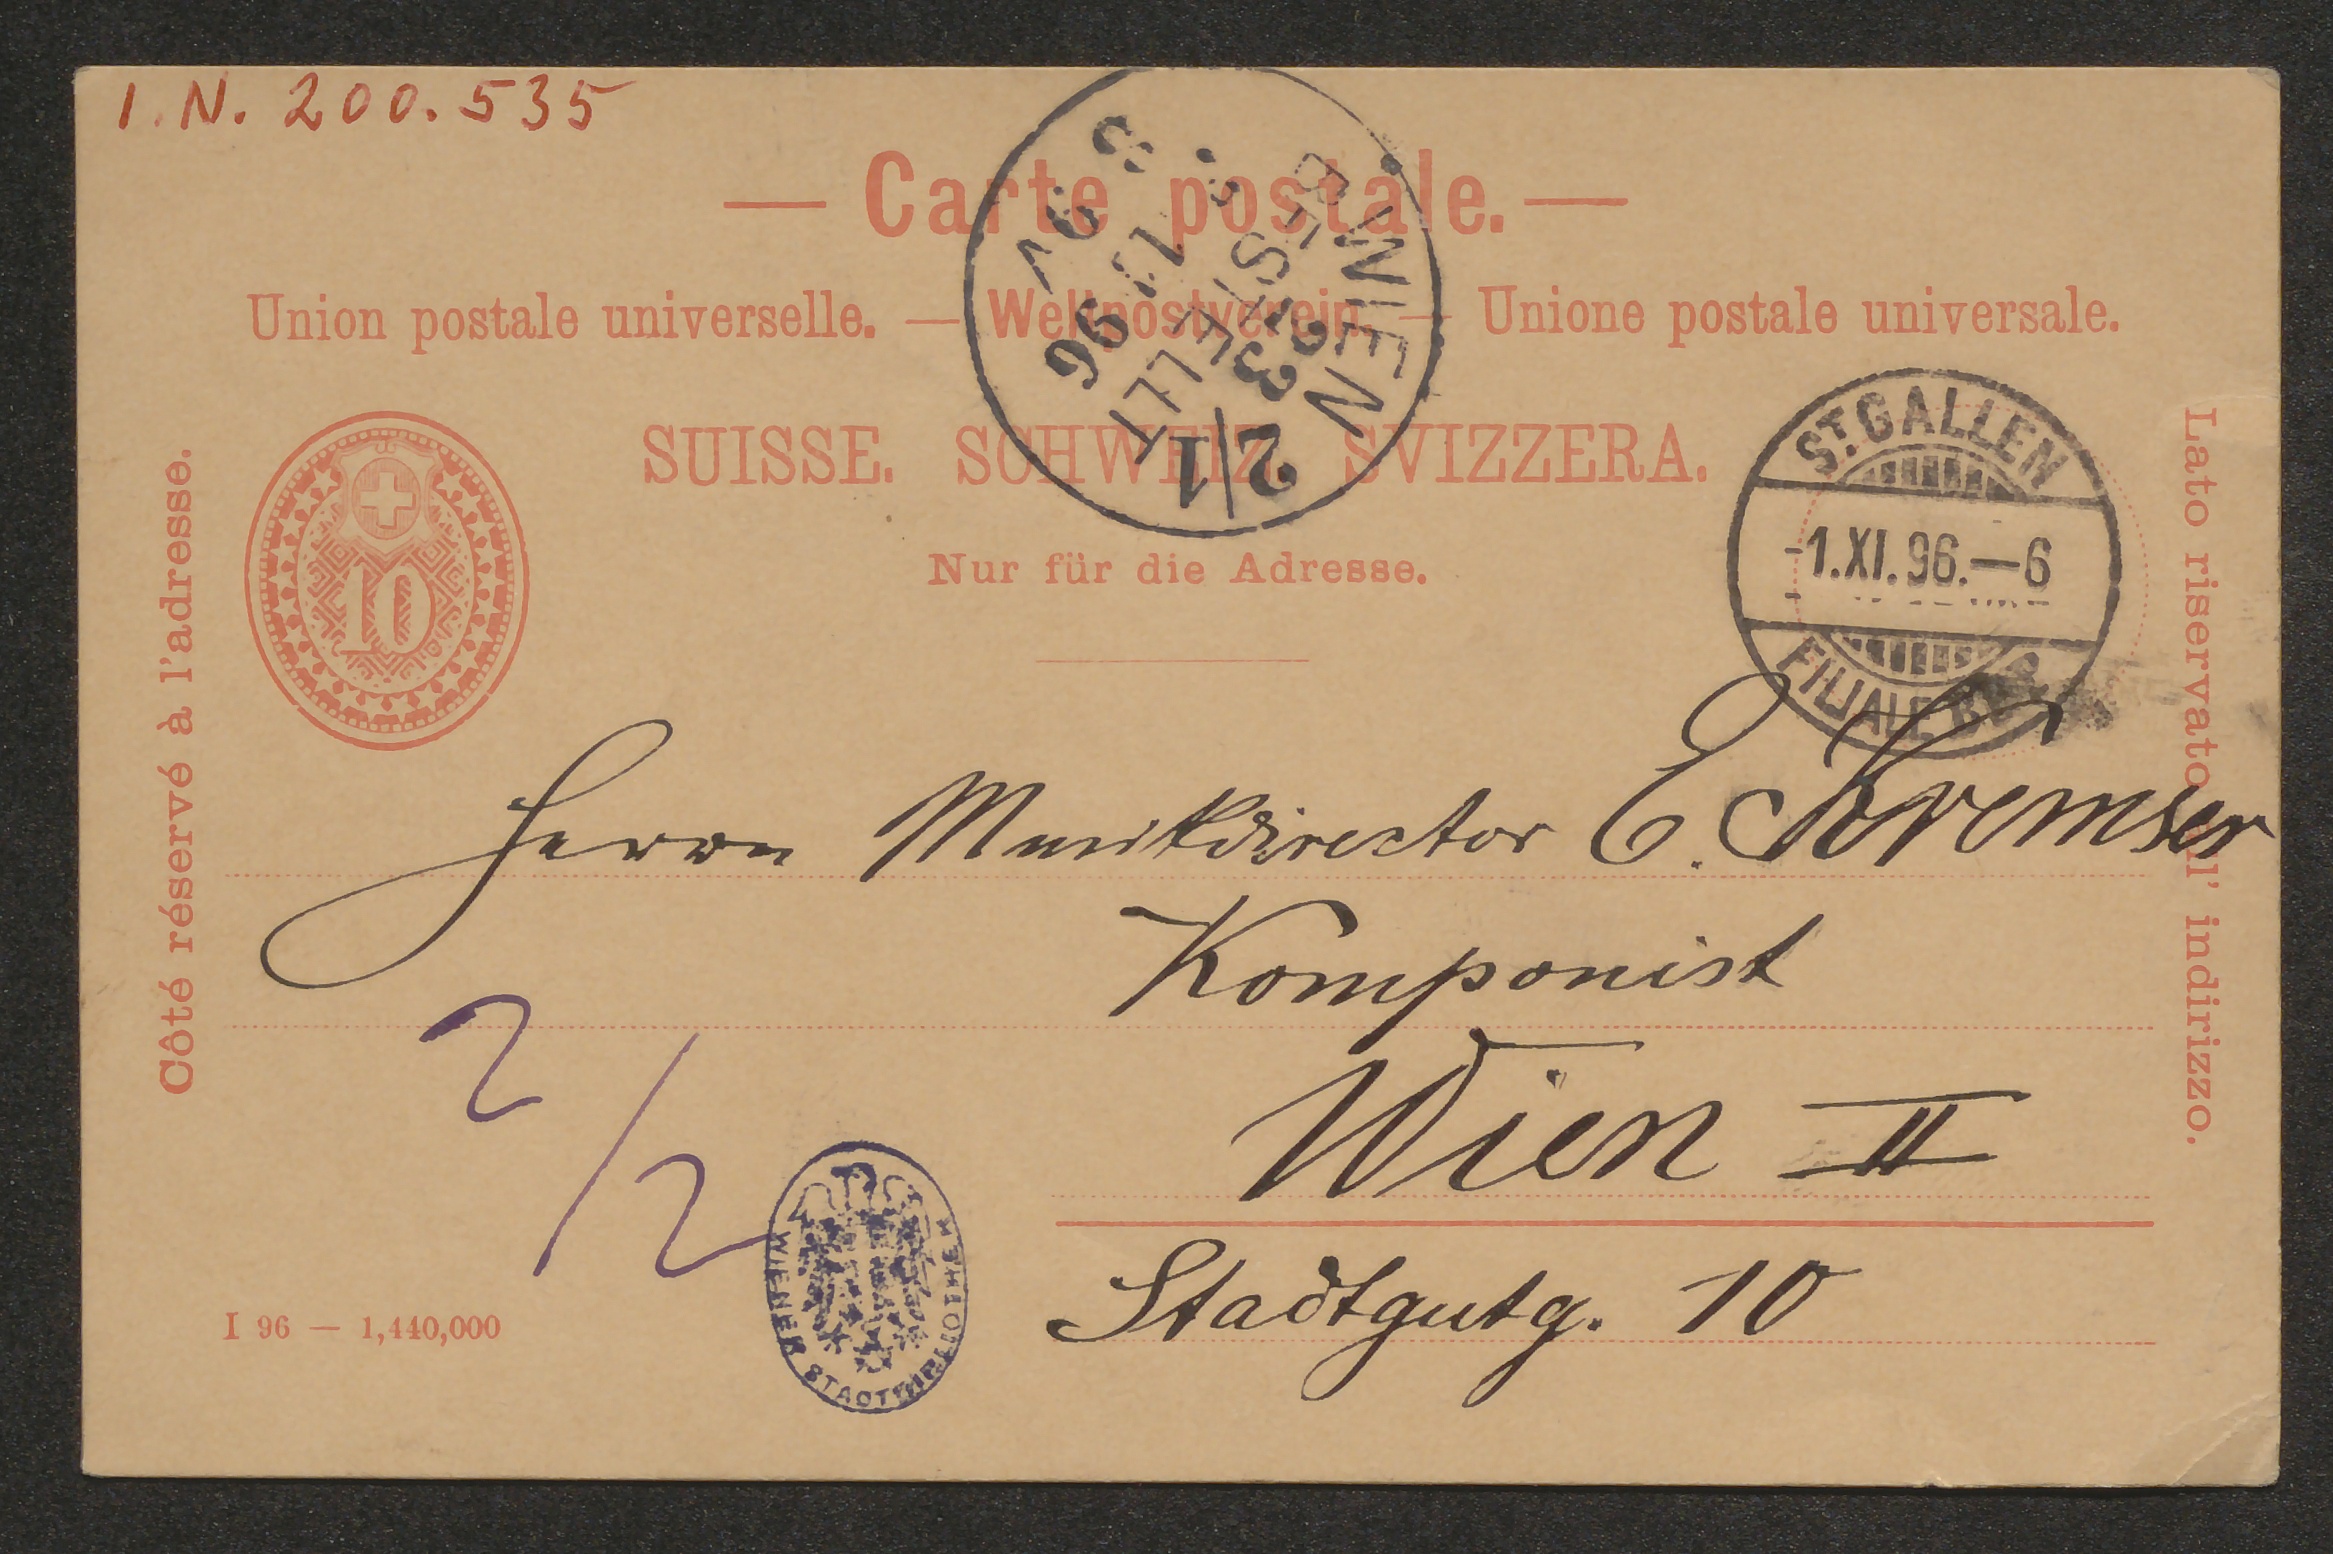 I.N. 200.535
— Carte postale. —
Union postale universelle. — Weltpostverein — Unione postale universale.
SUISSE. SCHWEIZ. SVIZZERA.
Nur für die Adresse.
Côté réservé à l'adresse.
Lato riservato all' indirizzo.
10
WIEN 2/1
BESTELLT
3. 11 96
ST. GALLEN
-1.XI.96.—6
FILIALE
Herrn Musikdirector E. Kremser
Komponist
Wien II
Stadtgutg. 10
2/2
WIENER STADTBIBLIOTHEK
I 96 — 1,440,000